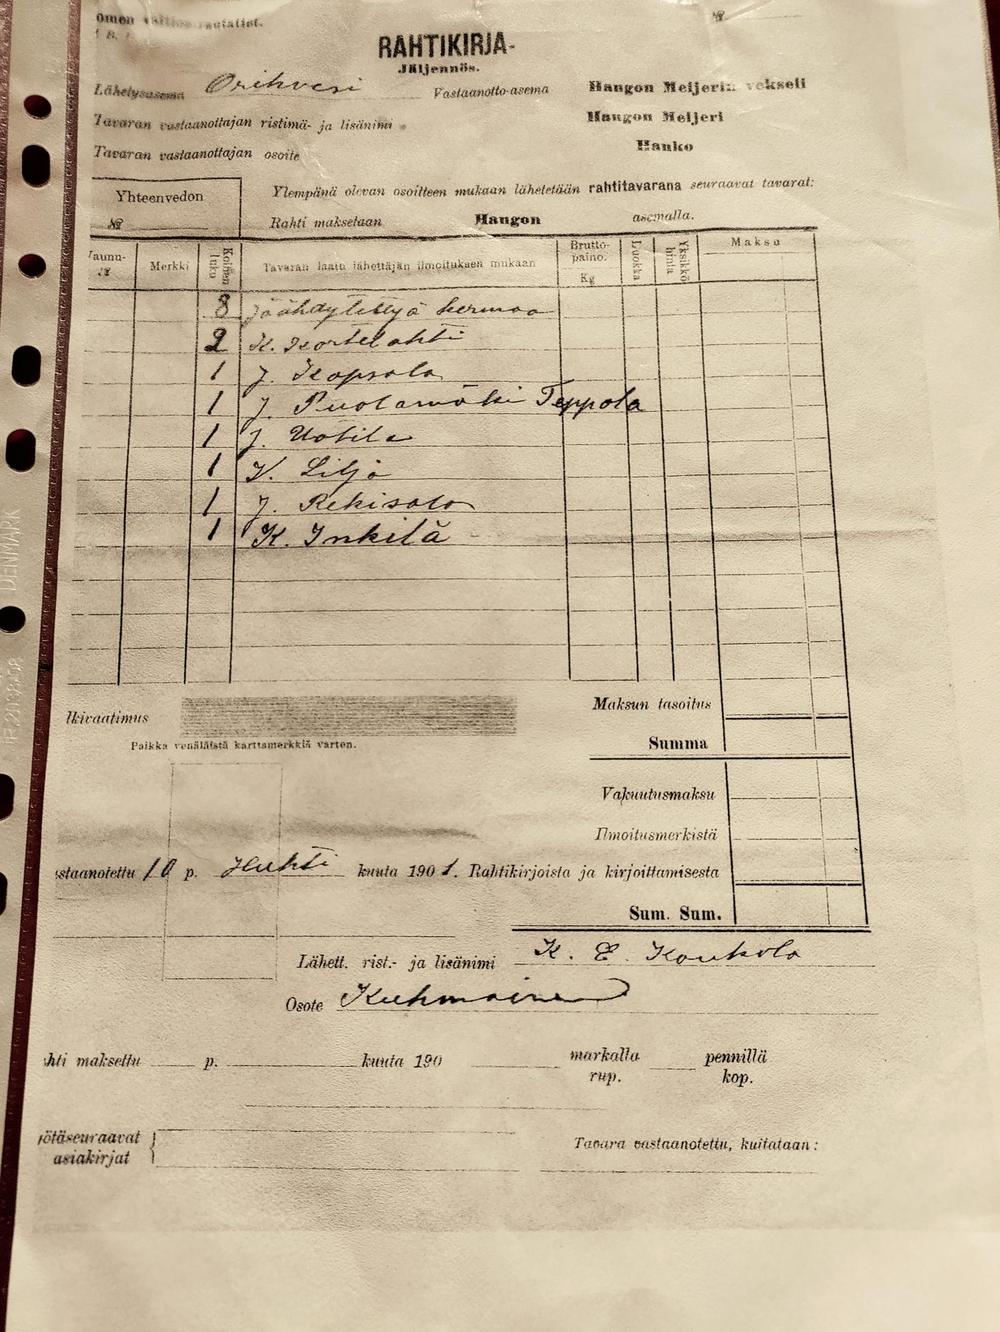 №
RAHTIKIRJA-
Jäljennös.
Lähetysasema Orihvesi Vastaanotto-asema Hangon Meijerin vekseli
Tavaran vastaanottajan ristimä- ja lisänimi Hangon Meijeri
Tavaran vastaanottajan osoite Hanko
Yhteenvedon
№
Ylempänä olevan osoitteen mukaan lähetetään rahtitavarana seuraavat tavarat:
Rahti maksetaan Hangon asemalla.
Merkki
luku
Tavaran laatu lähettäjän ilmoituksen mukaan
Brutto-
paino.
Kg
Luokka
Yksikkö
hinta
Maksu
8 jäähdytettyä kermaa
2 K. Kortelahti
1 J. Kopsala
1 J. Puolamäki Teppola
1 J. Uotila
1 K. Lilja
1 J. Rekisalo
1 K. Inkilä
Maksun tasoitus
Paikka venäläistä karttamerkkiä varten.
Summa
Vakuutusmaksu
Ilmoitusmerkistä
10 p. Huhti kuuta 1901. Rahtikirjoista ja kirjoittamisesta
Sum. Sum.
Lähett. rist.- ja lisänimi K. E. Koukola
Osote Kuhmoinen
maksettu p. kuuta 190 markalla pennillä
rup. kop.
asiakirjat
Tavara vastaanotettu, kuitataan:
DENMARK